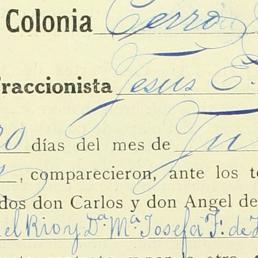 Colonia Cerro
Fraccionista Jesus E.
20 días del mes de Ju
, comparecieron, ante los te
dos don Carlos y don Angel de
el Rio y Dª Mª Josefa F. de